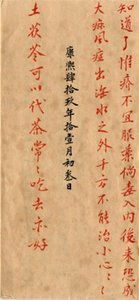 知道了惟疥不宜服藥倘毒入內後来恐成
大麻風症出海水之外千方不能治小心〻〻
康熙肆拾玖年拾壹月初叁日
土茯苓可以代茶常〻吃去亦好